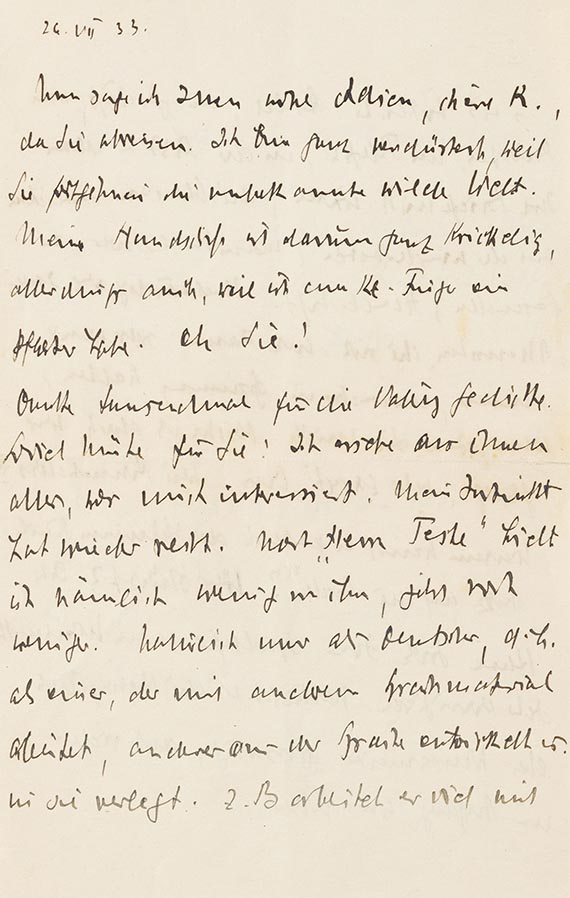 26. VII 33.
Nun sage ich Ihnen wohl Adieu, chère K.,
da Sie abreisen. Ich bin ganz verdüstert, weil
Sie fortgehn in die unbekannte wilde Welt.
Meine Handschrift ist darum ganz krickelig,
allerdings auch, weil ich am Ze-Finger ein
Pflaster habe. Oh Sie!
Danke tausendmal für die Valéry Gedichte.
Soviel Mühe für Sie! Ich ersehe aus ihnen
alles, was mich interessiert. Mein Instinkt
hat wieder recht. Nach „Herrn Teste" hielt
ich nämlich wenig von ihm, jetzt noch
weniger. Natürlich nur als Deutscher, d. h.
als einer, der mit anderem Sprachmaterial
arbeitet, anderes aus der Sprache entwickelt u.
in sie verlegt. Z. B arbeitet er viel mit